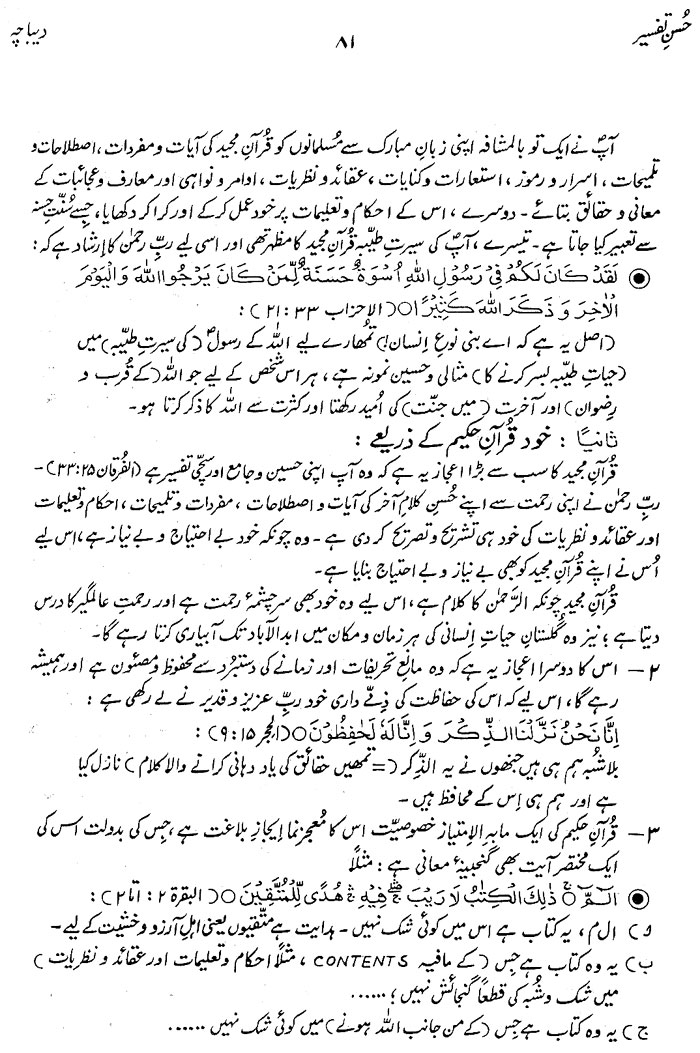 حُسنِ تفسیر
۸۱
دیباچہ
آپؐ نے ایک تو بالمشافہ اپنی زبانِ مبارک سے مُسلمانوں کو قُرآنِ مجید کی آیات و مفردات، اصطلاحات و
تلمیحات، اسرار و رموز، استعارات و کنایات، عقائد و نظریات، اوامر و نواہی اور معارف و عجائبات کے
معانی و حقائق بتائے۔ دوسرے، اس کے احکام و تعلیمات پر خود عمل کر کے اور کرا کر دکھایا، جِسے سُنّتِ حسنہ
سے تعبیر کیا جاتا ہے۔ تیسرے، آپؐ کی سیرتِ طیّبہ قُرآنِ مجید کا مظہر تھی اور اسی لیے ربِّ رحمٰن کا اِرشاد ہے کہ:
لَقَدْ كَانَ لَكُمْ فِيْ رَسُوْلِ اللهِ اُسْوَةٌ حَسَنَةٌ لِّمَنْ كَانَ يَرْجُوا اللهَ وَالْيَوْمَ
الْاٰخِرَ وَ ذَكَرَ اللهَ كَثِيْرًا ○ (الاحزاب ۳۳ : ۲۱) :
(اصل یہ ہے کہ اے بنی نوعِ اِنسان!) تُمھارے لیے اللہ کے رسولؐ (کی سیرتِ طیّبہ) میں
(حیاتِ طیّبہ بسر کرنے کا) مثالی و حسین نمونہ ہے، ہر اس شخص کے لیے جو اللہ (کے قُرب و
رِضوان) اور آخرت (میں جنّت) کی اُمید رکھتا اور کثرت سے اللہ کا ذکر کرتا ہو۔
ثانیًا : خود قُرآنِ حکیم کے ذریعے :
قُرآنِ مجید کا سب سے بڑا اعجاز یہ ہے کہ وہ آپ اپنی حسین و جامع اور سچّی تفسیر ہے (الفُرقان ۲۵:۳۳)۔
ربِّ رحمٰن نے اپنی رحمت سے اپنے حُسنِ کلامِ آخر کی آیات و اصطلاحات، مفردات و تلمیحات، احکام و تعلیمات
اور عقائد و نظریات کی خود ہی تشریح و تصریح کر دی ہے۔ وہ چونکہ خود بے احتیاج و بے نیاز ہے، اس لیے
اُس نے اپنے قُرآنِ مجید کو بھی بے نیاز و بے احتیاج بنایا ہے۔
قُرآنِ مجید چونکہ الرَّحمٰن کا کلام ہے، اس لیے وہ خود بھی سرچشمۂ رحمت ہے اور رحمتِ عالمگیر کا درس
دیتا ہے؛ نیز وہ گلستانِ حیاتِ اِنسانی کی ہر زمان و مکان میں ابدالآباد تک آبیاری کرتا رہے گا۔
۲ـ اس کا دوسرا اعجاز یہ ہے کہ وہ مانعِ تحریفات اور زمانے کی دستبرُد سے محفوظ و مصئون ہے اور ہمیشہ
رہے گا، اس لیے کہ اس کی حفاظت کی ذِمّے داری خود ربِّ عزیز و قدیر نے لے رکھی ہے :
اِنَّا نَحْنُ نَزَّلْنَا الذِّكْرَ وَ اِنَّا لَهٗ لَحٰفِظُوْنَ ○ (الحجر ۱۵ : ۹) :
بلاشُبہ ہم ہی ہیں جنھوں نے یہ الذِّکر (= تمھیں حقائق کی یاد دہانی کرانے والا کلام) نازل کیا
ہے اور ہم ہی اِس کے محافظ ہیں۔
۳ـ قُرآنِ حکیم کی ایک مابہ الاِمتیاز خصوصیّت اس کا مُعجز نما اِیجازِ بلاغت ہے، جِس کی بدولت اس کی
ایک مختصر آیت بھی گنجینۂ معانی ہے : مثلًا
الٓمّٓ ۚ ذٰلِكَ الْكِتٰبُ لَا رَيْبَ ۛ فِيْهِ ۛ هُدًى لِّلْمُتَّقِيْنَ ○ (البقرۃ ۲ : ۱ تا ۲) :
و) ال م، یہ کتاب ہے اس میں کوئی شک نہیں۔ ہدایت ہے متّقیوں یعنی اہلِ آرزو و خشیت کے لیے۔
ب) یہ وہ کتاب ہے جِس (کے مافیہ CONTENTS ، مثلًا احکام و تعلیمات اور عقائد و نظریات)
میں شک و شُبہ کی قطعًا گنجائش نہیں؛ ......
ج) یہ وہ کتاب ہے جِس (کے من جانب اللہ ہونے) میں کوئی شک نہیں ......